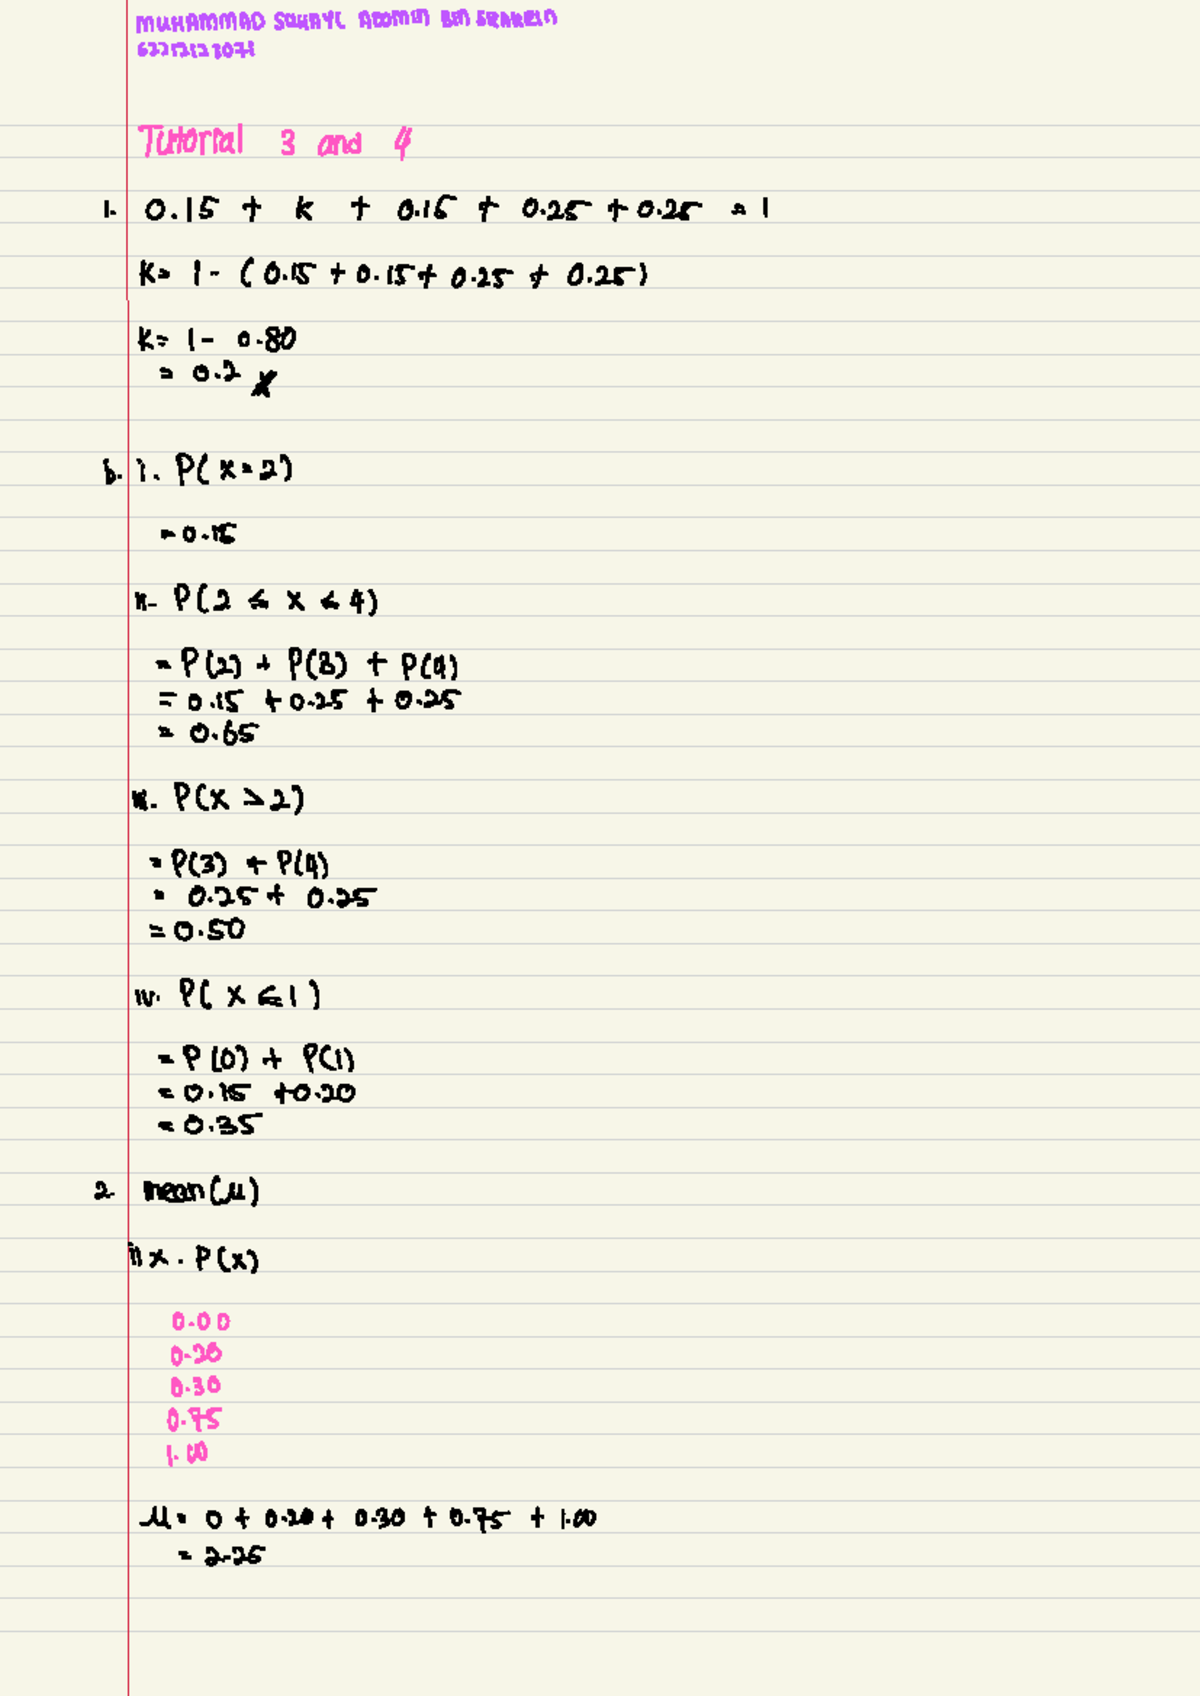 MUHAMMAD BIN
Tutorial 3 and 4
1. 0.15 + k + 0.15 + 0.25 + 0.25 = 1
K= 1 - (0.15 + 0.15 + 0.25 + 0.25)
K= 1 - 0.80
= 0.2
b. i. P(x=2)
= 0.15
ii. P(2 ≤ x ≤ 4)
= P(2) + P(3) + P(4)
= 0.15 + 0.25 + 0.25
= 0.65
iii. P(x > 2)
= P(3) + P(4)
= 0.25 + 0.25
= 0.50
iv. P(x ≤ 1)
= P(0) + P(1)
= 0.15 + 0.20
= 0.35
2. mean(μ)
x . P(x)
0.00
0.20
0.30
0.75
1.00
μ = 0 + 0.20 + 0.30 + 0.75 + 1.00
= 2.25